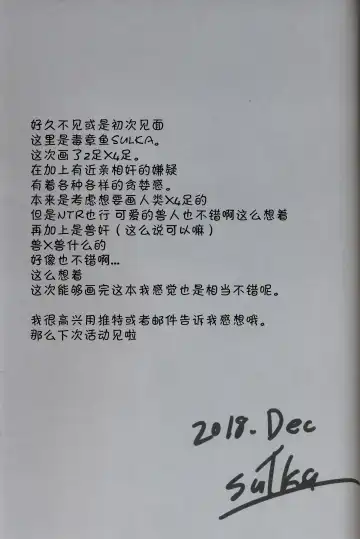 好久不见或是初次见面
这里是毒章鱼SULKA。
这次画了2足X4足。
在加上有近亲相奸的嫌疑
有着各种各样的贪婪感。
本来是考虑想要画人类X4足的
但是NTR也行 可爱的兽人也不错啊这么想着
再加上是兽奸（这么说可以嘛）
兽X兽什么的
好像也不错啊...
这么想着
这次能够画完这本我感觉也是相当不错呢。
我很高兴用推特或者邮件告诉我感想哦。
那么下次活动见啦
2018. Dec
sulka